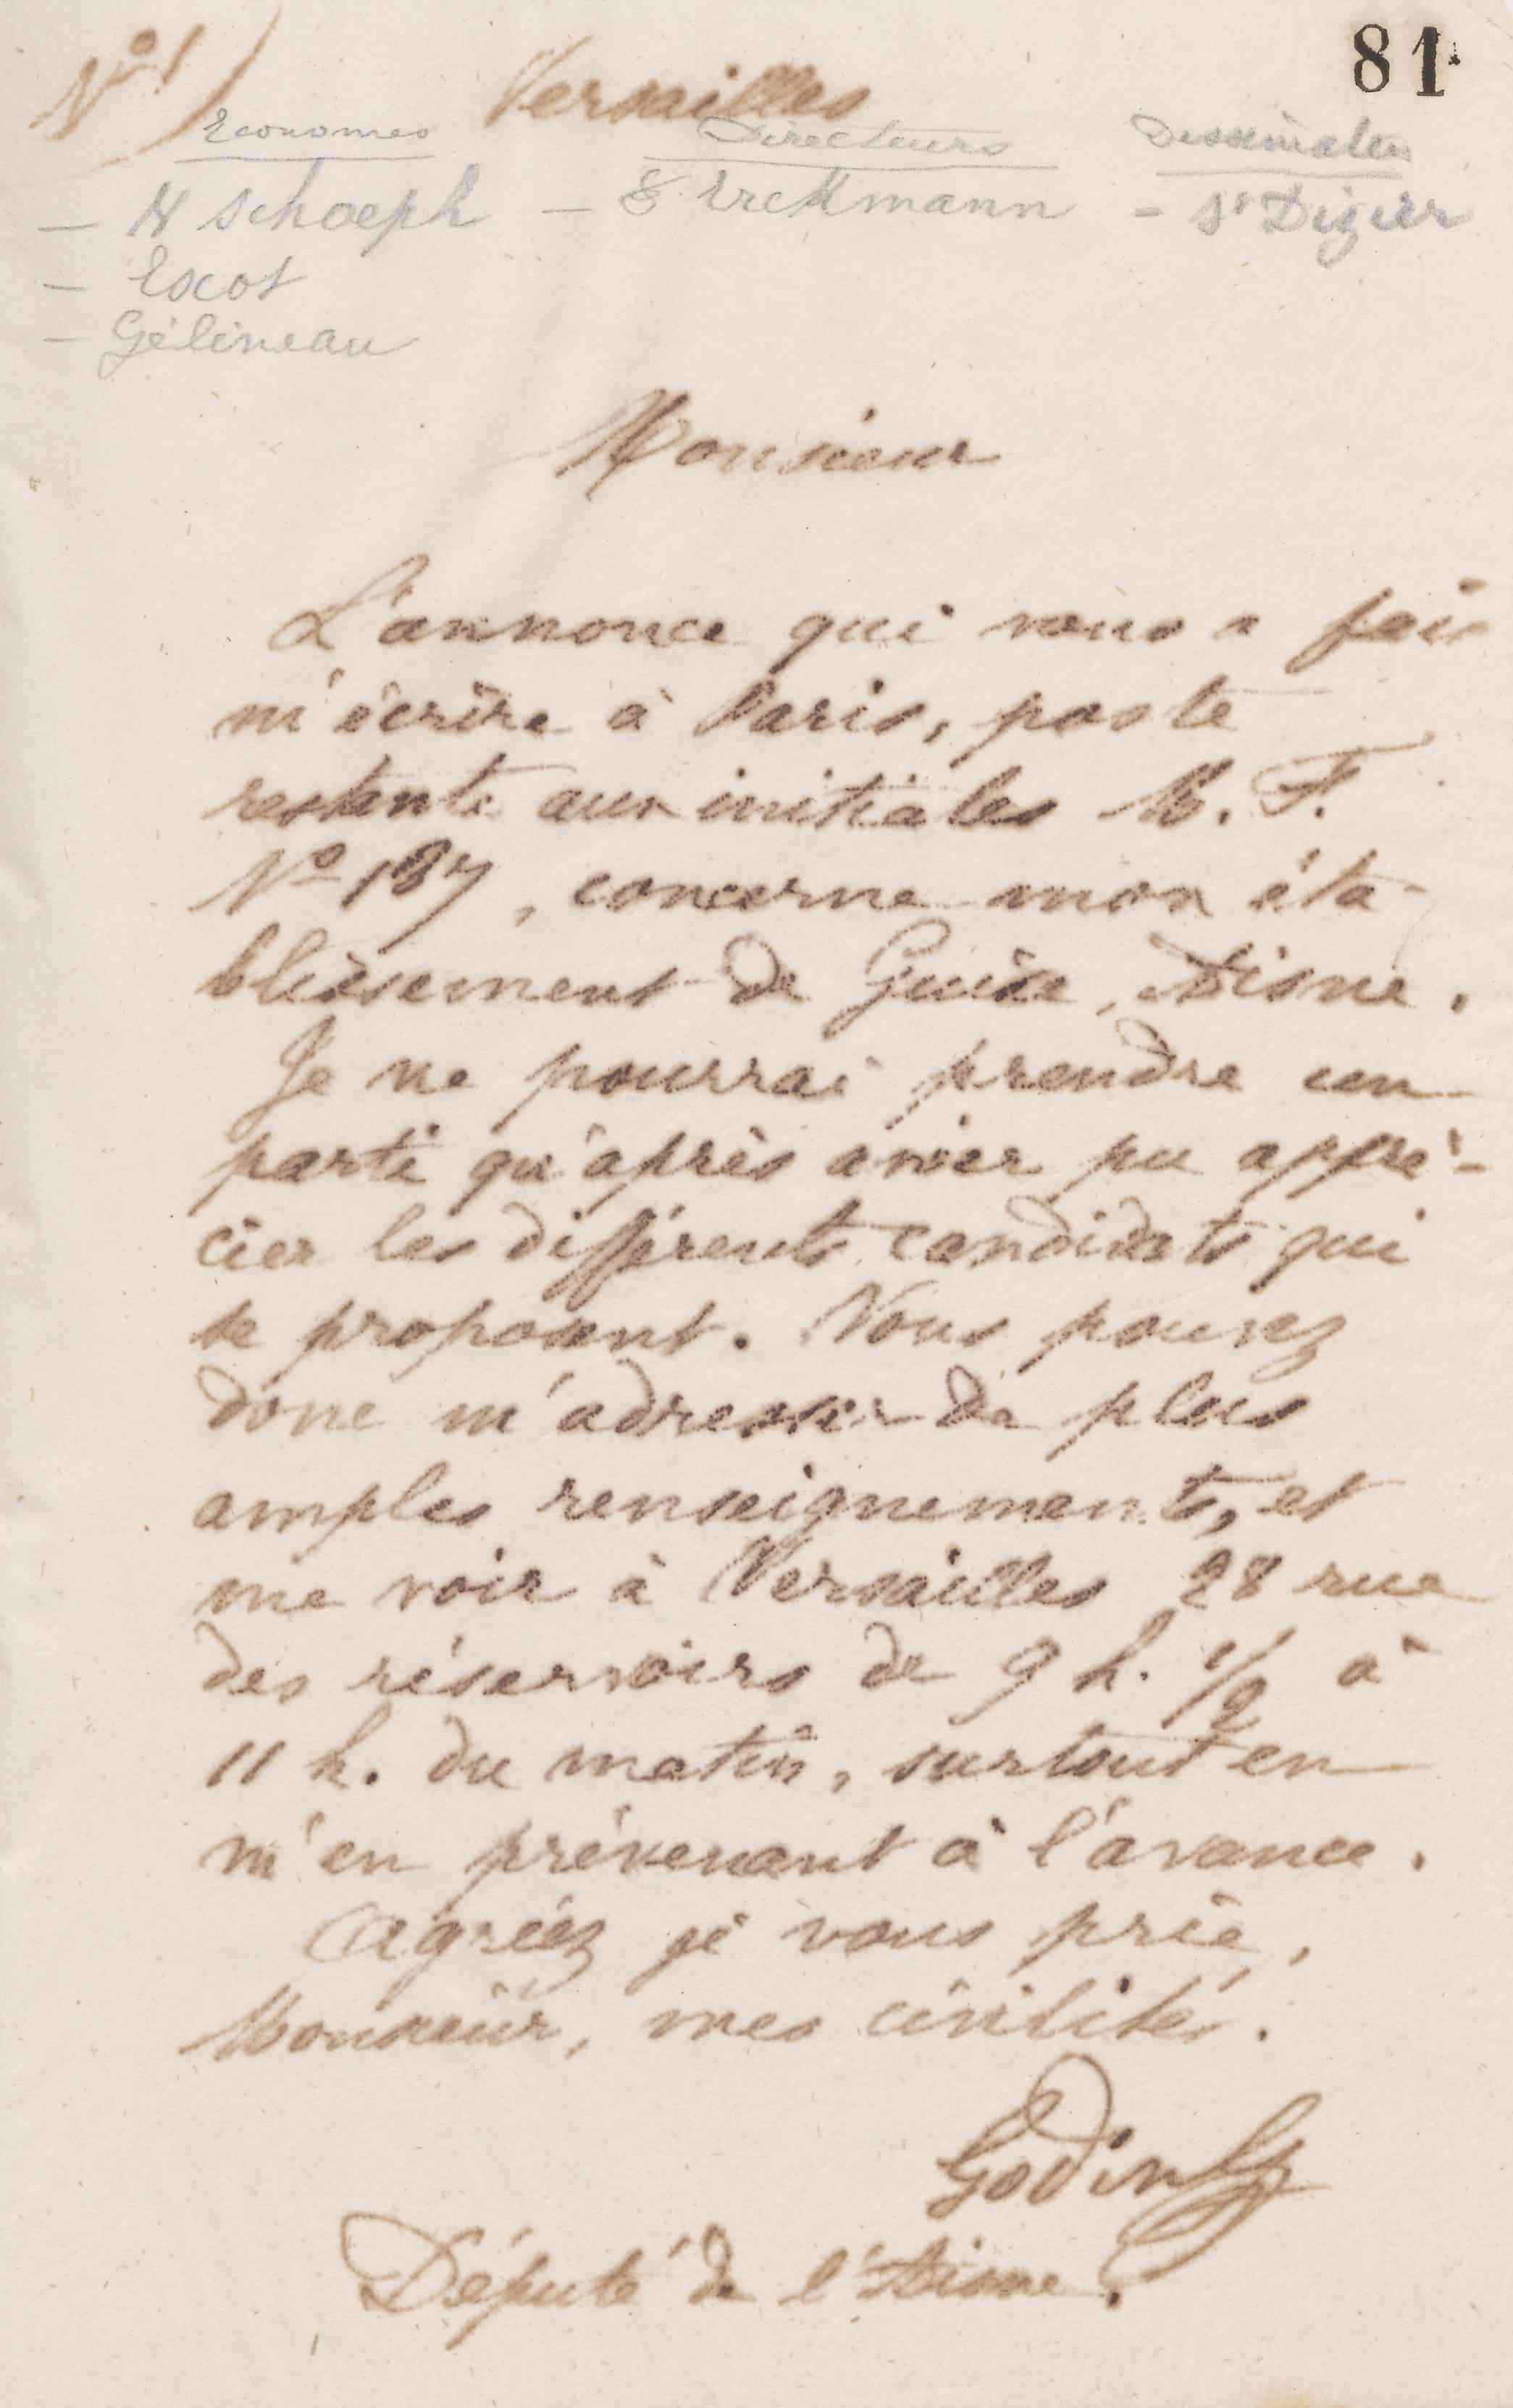 81
N° 1) Versailles
Economes Directeurs Dessinateur
— H Schoeph — E. Erckmann — St Dizier
— Escot
— Gélineau
Monsieur
L'annonce qui vous a fait
m'écrire à Paris, poste
restante aux initiales M. F.
N° 187, concerne mon éta-
blissement de Guise, Aisne.
Je ne pourrai prendre un
parti qu'après avoir pu appré-
cier les différents candidats qui
se proposent. Vous pouvez
donc m'adresser de plus
amples renseignements, et
me voir à Versailles 28 rue
des réservoirs de 9 h. 1/2 à
11 h. du matin, surtout en
m'en prévenant à l'avance.
Agréez je vous prie,
Monsieur, mes civilités.
Godin
Député de l'Aisne.